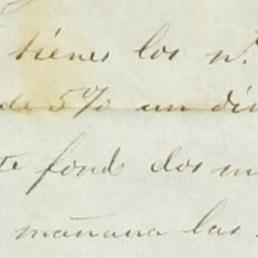 tienes los n.
de 5% un di
te fond dos m
mañana las